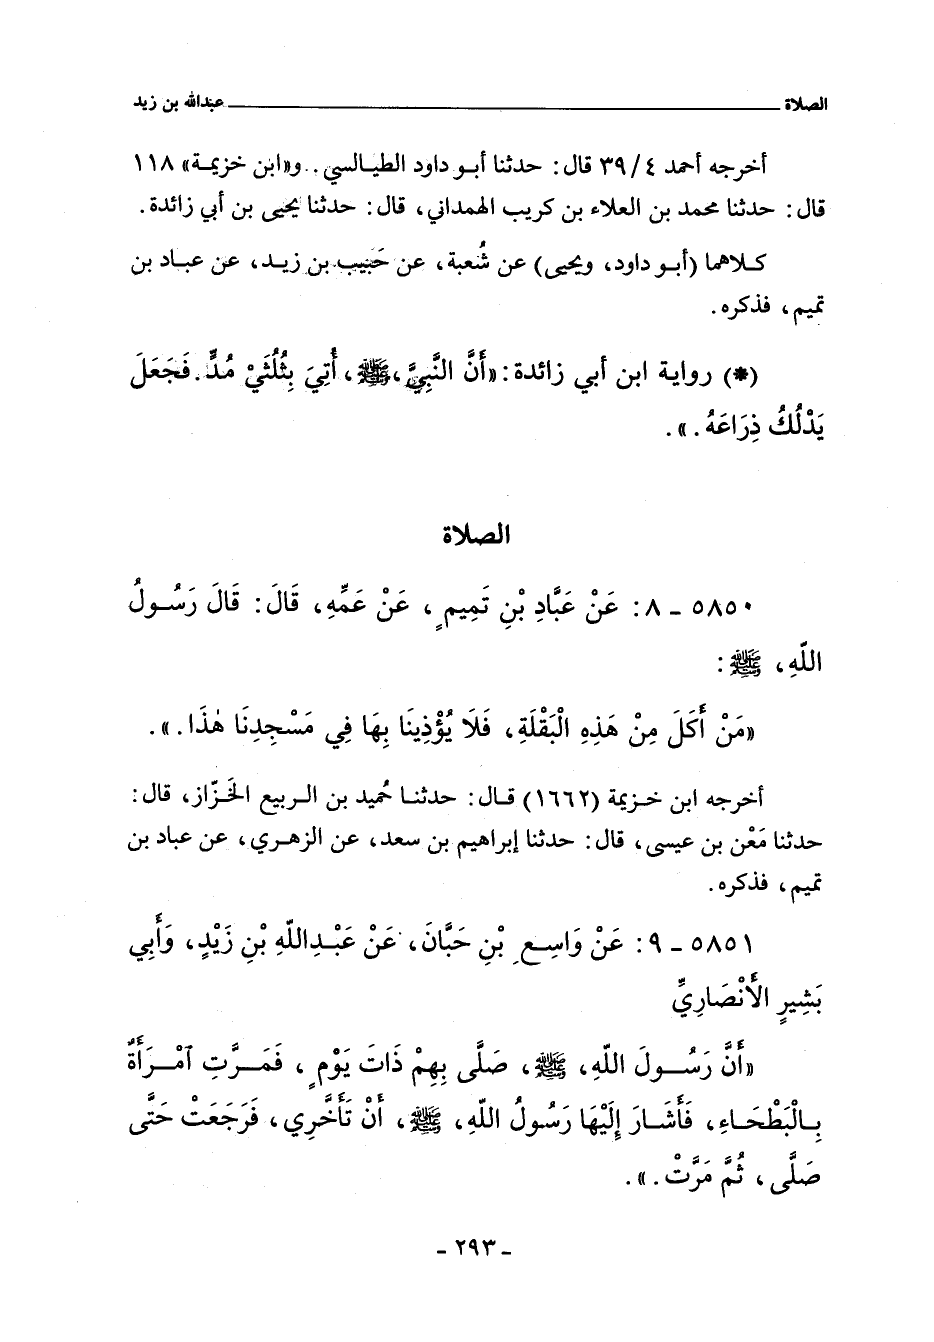 الصلاة ـــــــ عبدالله بن زيد
أخرجه أحمد ٣٩/٤ قال: حدثنا أبو داود الطيالسي. و«ابن خزيمة» ١١٨
قال: حدثنا محمد بن العلاء بن كريب الهمداني، قال: حدثنا يحيى بن أبي زائدة.
كلاهما (أبو داود، ويحيى) عن شُعبة، عن حَبيب بن زيد، عن عباد بن
تميم، فذكره.
(*) رواية ابن أبي زائدة: «أَنَّ النَّبِيَّ، ﷺ، أُتِيَ بِثُلُثَيْ مُدٍّ. فَجَعَلَ
يَدْلُكُ ذِرَاعَهُ.».
الصلاة
٥٨٥٠ ـ ٨: عَنْ عَبَّادِ بْنِ تَمِيمٍ، عَنْ عَمِّهِ، قَالَ: قَالَ رَسُولُ
اللّهِ، ﷺ:
«مَنْ أَكَلَ مِنْ هَذِهِ الْبَقْلَةِ، فَلَا يُؤْذِينَا بِهَا فِي مَسْجِدِنَا هٰذَا.».
أخرجه ابن خزيمة (١٦٦٢) قال: حدثنا حُميد بن الربيع الخَزّاز، قال:
حدثنا مَعْن بن عيسى، قال: حدثنا إبراهيم بن سعد، عن الزهري، عن عباد بن
تميم، فذكره.
٥٨٥١ ـ ٩: عَنْ وَاسِعِ بْنِ حَبَّانَ، عَنْ عَبْدِاللّهِ بْنِ زَيْدٍ، وَأَبِي
بَشِيرٍ الأَنْصَارِيِّ
«أَنَّ رَسُولَ اللّهِ، ﷺ، صَلَّى بِهِمْ ذَاتَ يَوْمٍ، فَمَرَّتِ آمْرَأَةٌ
بِالْبَطْحَاءِ، فَأَشَارَ إِلَيْهَا رَسُولُ اللّهِ، ﷺ، أَنْ تَأَخَّرِي، فَرَجَعَتْ حَتَّى
صَلَّى، ثُمَّ مَرَّتْ.».
ـ ٢٩٣ ـ